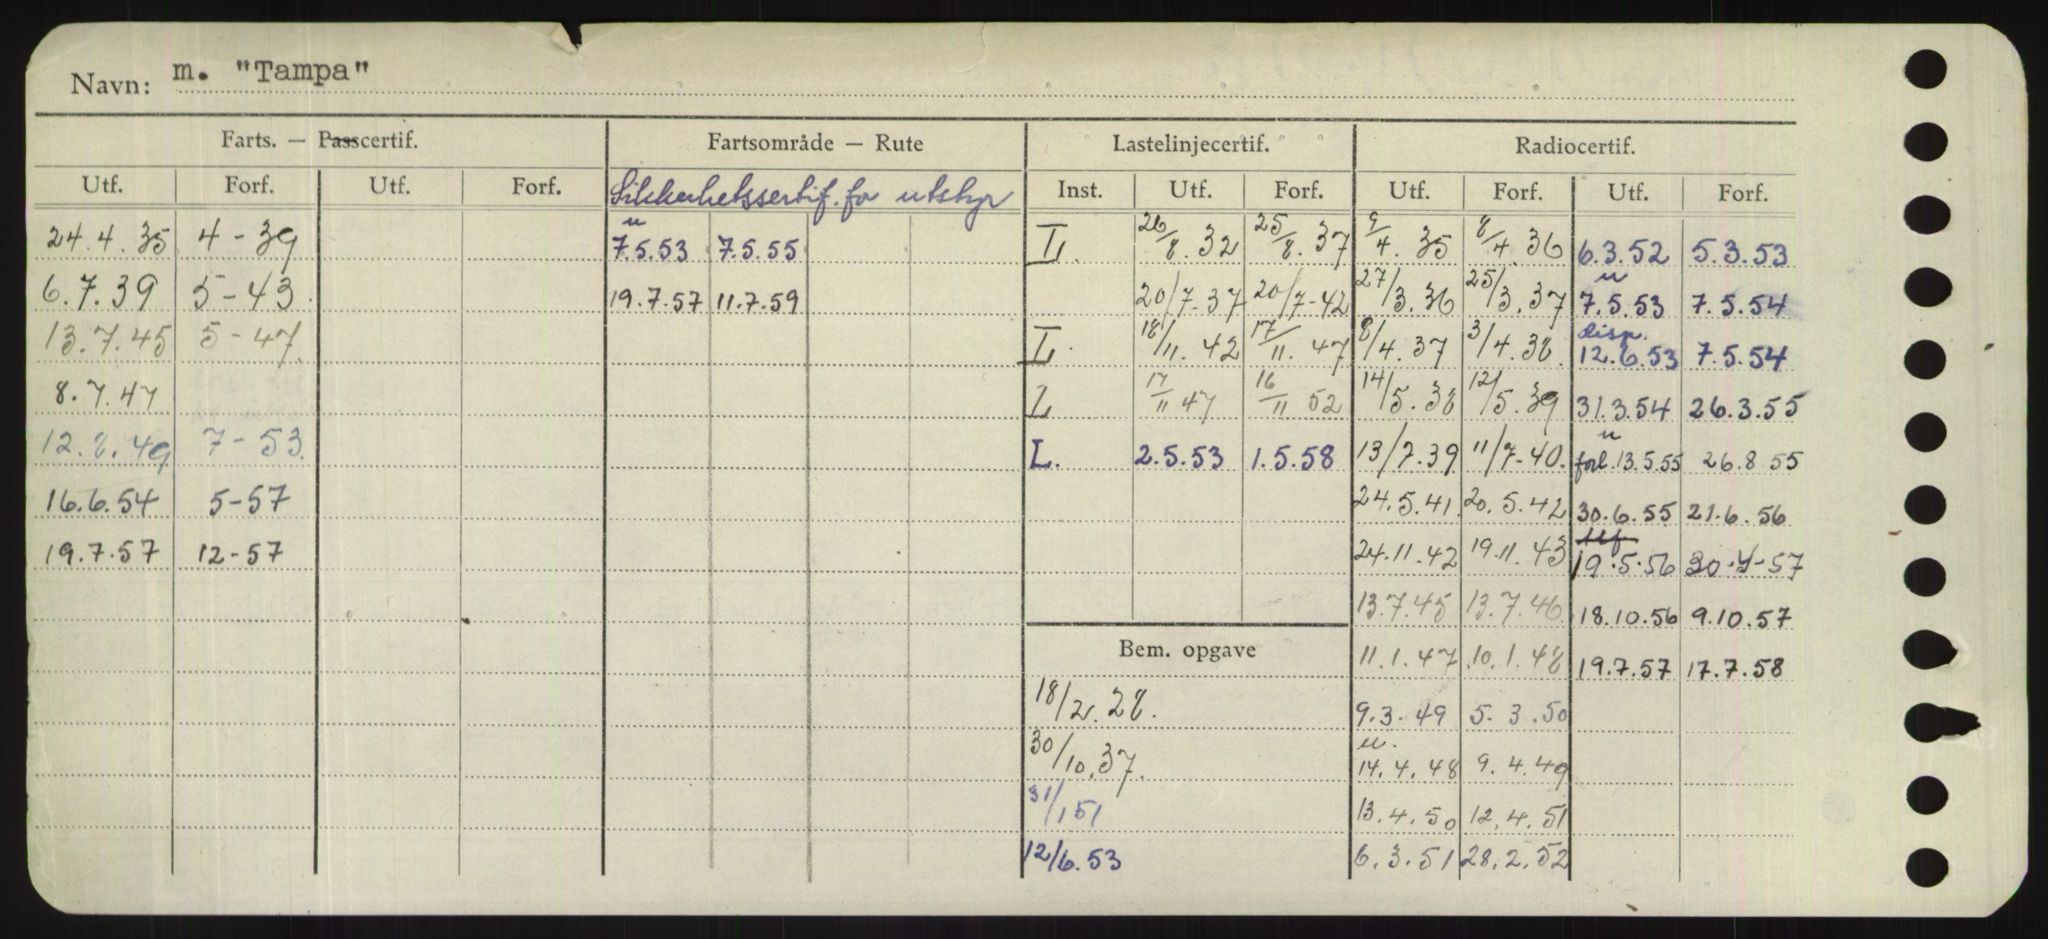 Navn: m. "Tampa"
Farts. — Passcertif. Fartsområde — Rute Lastelinjecertif. Radiocertif.
Utf. Forf. Utf. Forf. Sikkerhetssertif. for utstyr Inst. Utf. Forf. Utf. Forf. Utf. Forf.
24.4.35 4-39 u 7.5.53 7.5.55 L. 26/8.32 25/8.37 9/4.35 8/4.36 6.3.52 5.3.53
6.7.39 5-43. 19.7.57 11.7.59 20/7-37 20/7-42 27/3.36 25/3.37 u 7.5.53 7.5.54
13.7.45 5-47. L. 18/11.42 17/11.47 8/4.37 3/4.38. disp. 12.6.53 7.5.54
8.7.47 L 17/11 47 16/11 52 14/5.38 12/5.39 31.3.54 26.3.55
12.8.49 7-53. L. 2.5.53 1.5.58 13/7.39 11/7-40. u forl. 13.5.55 26.8.55
16.6.54 5-57 24.5.41. 20.5.42 30.6.55 21.6.56
19.7.57 12-57 24.11.42 19.11.43 19.5.56
13.7.45 13.7.46. 18.10.56 9.10.57
Bem. opgave 11.1.47 10.1.48 19.7.57 17.7.58
18/2.28. 9.3.49 5.3.50
30/10.37. u. 14.4.48 9.4.49
31/1 51 13.4.50 12.4.51
12/6.53 6.3.51 28.2.52